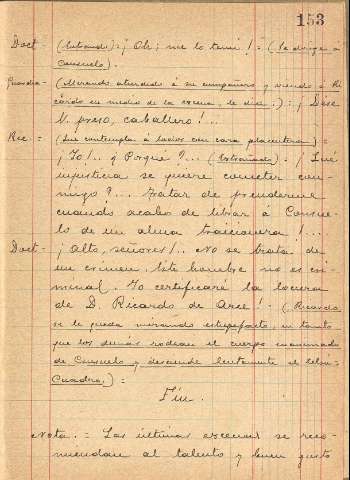 153
Doct - (Entrando) = ¡Oh; me lo temí! = (Se dirige á
Consuelo).
Guardia = (Mirando aturdido á su compañero y viendo á Ri-
cardo en medio de la escena, le dice.) = ¡Dése
V. preso, caballero!...
Ric. = (Que contempla á todos con cara placentera) =
¡Yo!.. ¿y Porque?... (Extrañado) = ¡Qué
injusticia se quiere cometer con-
migo?... Tratar de prenderme
cuando acabo de librar á Consue-
lo de un alma traicionera!...
Doct - ¡Alto, señores!.. No se trata de
un crimen. Este hombre no es cri-
minal. Yo certificaré la locura
de D. Ricardo de Arce! - (Ricardo,
se le queda mirando estupefacto, en tanto
que los demás rodean el cuerpo inanimado
de Consuelo y desciende lentamente el telón
Cuadro.) =
Fin.
Nota. = Las últimas escenas se reco-
miendan al talento y buen gusto